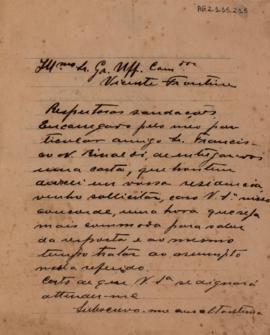 Illmo Sr. Gr. Uff. Com dor
Vicente Frontini
Respeitosas saudações
Encarregado pelo meu par
ticular amigo Sr. Francis
co N. Rinaldi, de entregar vos
uma carta, que hontem
deixei em vossa residencia
venho sollicitar, caso V. Sa
uma hora que seja
mais commoda para saber
da resposta e ao mesmo
tempo tratar ao assumpto
nesta referido.
Certo de que V. Sa se dignará
attender-me
Subscrevo-me